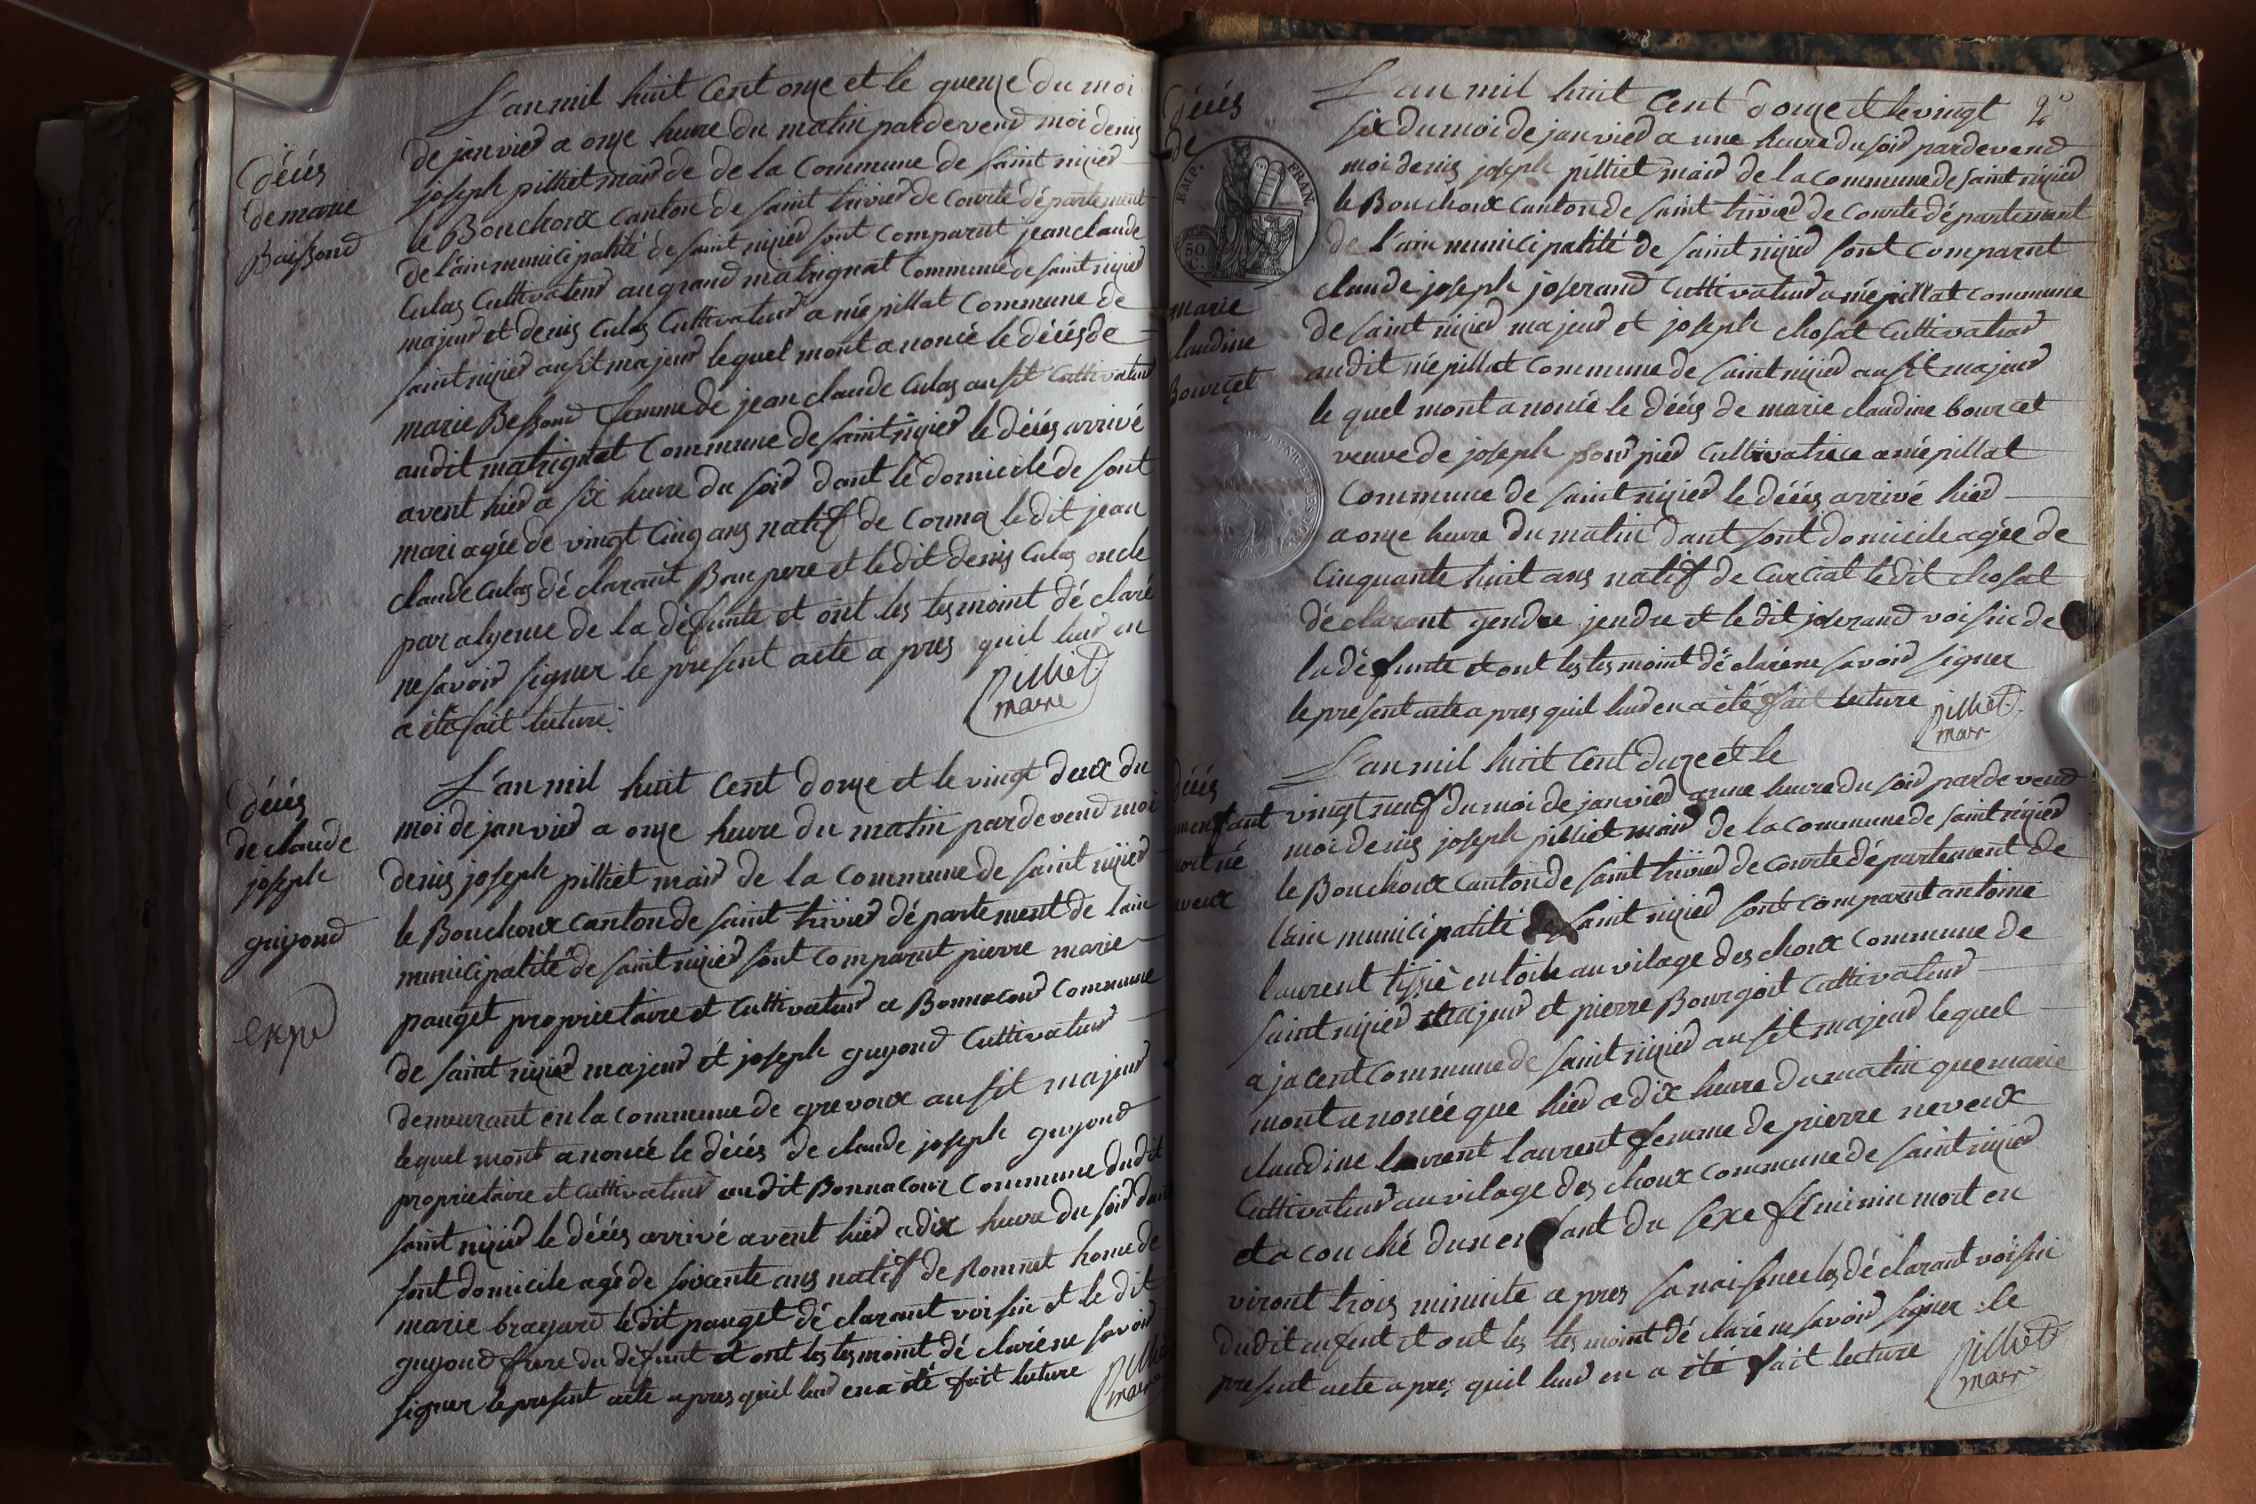 décés
de marie
Baissond
L'an mil huit Cent onze et le quenze du moi
de janvier a onze heure du matin pardevend moi denis
joseph pilliet maird de de la Commune de saint nizier
le Bouchoux canton de saint trivier de Courte département
de l'ain municipalité de saint nizier sont Comparut jean claude
Culas Cultivateur au grand matrignat Commune de saint nizier
majeur et denis Culas Cultivateur a mépillat Commune de
saint nizier ausit majeur lequel mont anoncé le décés de
marie Bessond femme de jean claude Culas ausit Cultivateur
audit matrignat Commune de saint nizier le décés arrivé
avent hier a six heure du soir dant le domicile de sont
mari agée de vingt Cinq ans natif de Corma le dit jean
claude Culas déclarant Beau pere et le dit denis Culas oncle
par alyence de la défunte et ont les tesmoint déclaré
ne savoir signer le present acte a pres quil leur en
a été fait lecture.
Pilliet
maire
décés
de claude
joseph
guyond
expd
L'an mil huit Cent douze et le vingt deux du
moi de janvier a onze heure du matin pardevend moi
denis joseph pilliet mair de la commune de saint nizier
le Bouchoux canton de saint trivier département de lain
municipalité de saint nizier sont comparut pierre marie
pauget proprietaire et cultivateur a Bonnacour Commune
de saint nizier majeur et joseph guyond Cultivateur
demeurant en la commune de grevoux ausit majeur
lequel mont anoncé le décés de claude joseph guyond
proprietaire et cultivateur audit Bonnacour Commune dudit
saint nizier le décés arrivé avent hier a dix heure du soir dant
sont domicile agé de soixente ans natif de Romnet home de
marie brayard le dit pauget déclarant voisin et le dit
guyond frere du défunt et ont les tesmoint déclaré ne savoir
signer le present acte a pres quil leur en a été fait lecture
Pilliet
maire
2e
décés
de
EMP. FRAN.
50
C.
marie
laudine
Bourcet
L'an mil huit Cent douze et le vingt
six du moi de janvier a une heure du soir pardevend
moi denis joseph pilliet mair de la commune de saint nizier
le Bouchoux canton de saint trivier de Courte département
de l'ain municipalité de saint nizier sont Comparut
claude joseph joserand Cultivateur a mépillat commune
de saint nizier majeur et joseph chosat Cultivateur
audit mépillat Commune de saint nizier ausit majeur
le quel mont anoncé le décés de marie claudine bourcet
veuve de joseph pied Cultivatrice a mépillat
Commune de saint nizier le décés arrivé hier
a onze heure du matin dant sont domicile agée de
Cinquante huit ans natif de Curciat le dit chosat
déclarant gendre jendre et le dit joserand voisin de
la défunte et ont les tesmoint déclaré ne savoir signer
le present acte a pres quil leur en a été fait lecture
Pilliet
mair
décés
un enfant
mort né
neveux
L'an mil huit Cent duze et le
vingt neuf du moi de janvier a une heure du soir pardevend
moi denis joseph pilliet mair de la commune de saint nizier
le Bouchoux canton de saint trivier de courte département de
l'ain municipalité de saint nizier sont comparut antoine
laurent tissié en toile au vilage des choux commune de
saint nizier majeur et pierre Bourgoit Cultivateur
a jacent Commune de saint nizier ausit majeur lequel
mont anoncée que hier a dix heure du matin que marie
claudine laurent laurent femme de pierre neveux
Cultivateur au vilage des choux commune de saint nizier
et a couché dun enfant du sexe féminin mort en
viront trois minute a pres sa naisence les déclarant voisin
dudit enfent et ont les tesmoint déclaré ne savoir signer le
present acte a pres quil leur en a été fait lecture
Pilliet
mair